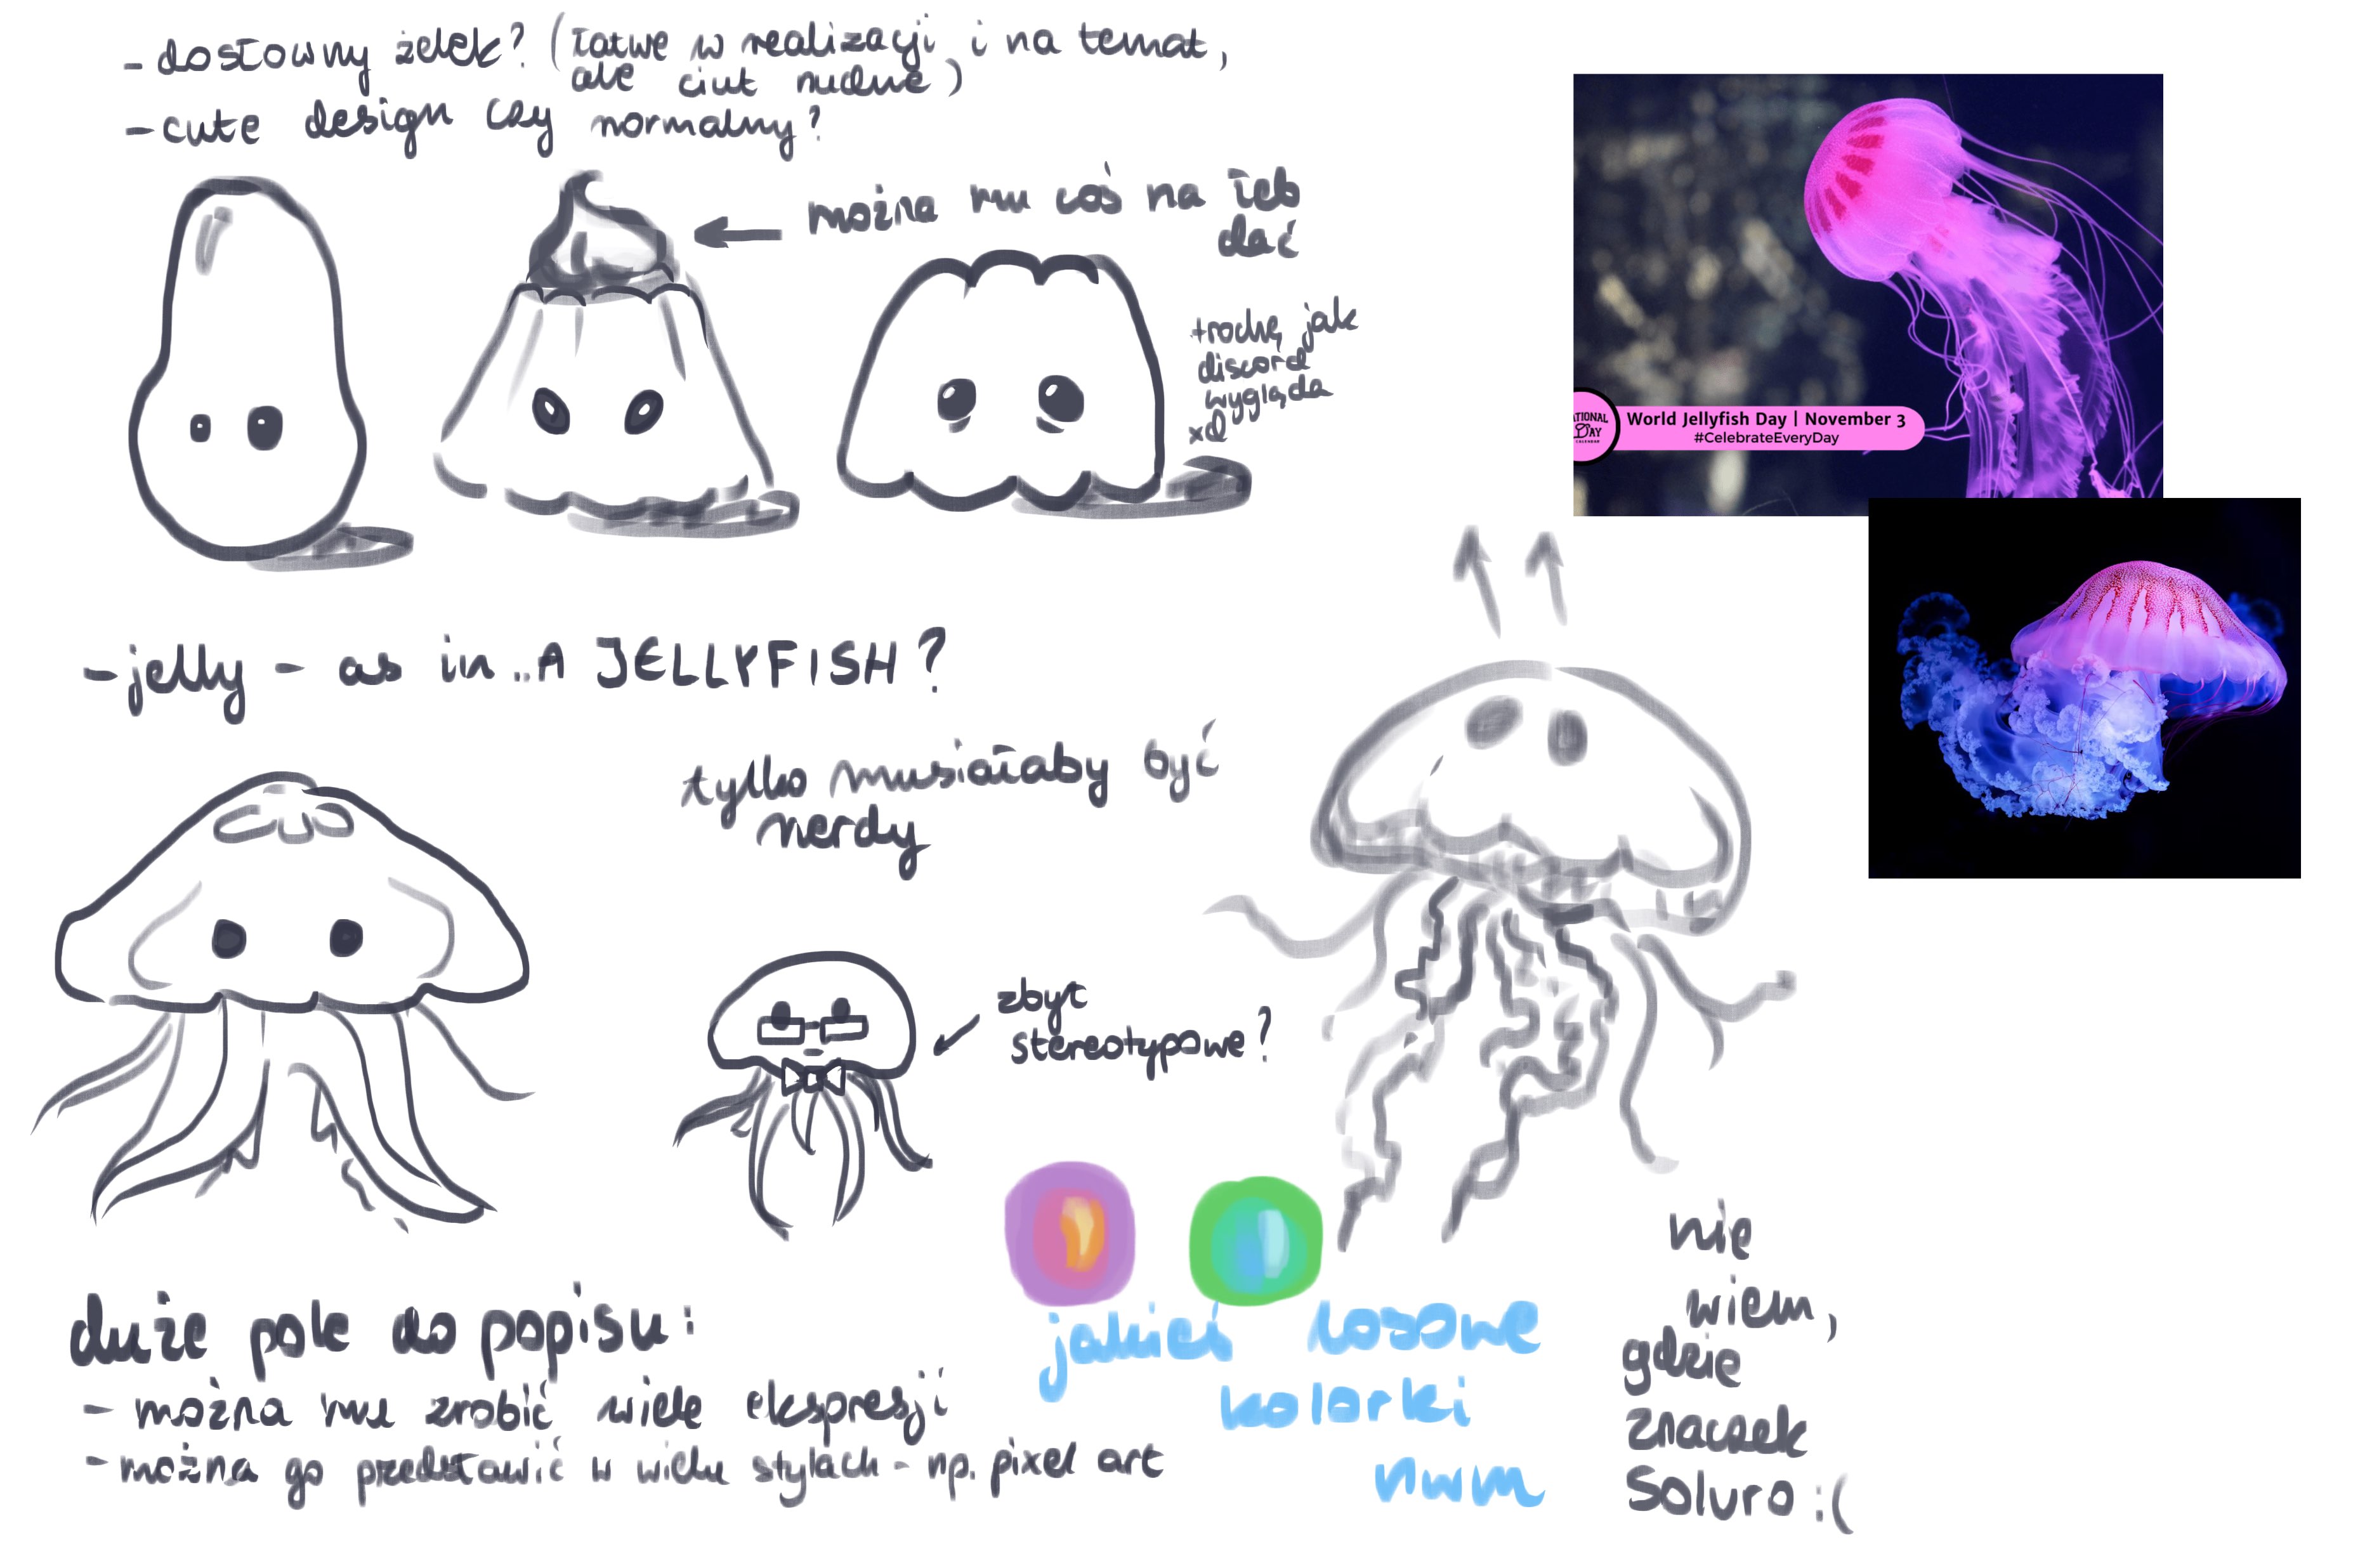 - dosłowny żelek? (łatwe w realizacji i na temat,
ale ciut nudne)
- cute design czy normalny?
można mu coś na łeb
dać
trochę jak
discord
wygląda
xd
World Jellyfish Day | November 3
#CelebrateEveryDay
ATIONAL
DAY
CALENDAR
- jelly - as in.. A JELLYFISH?
tylko musiałaby być
nerdy
zbyt
stereotypowe?
duże pole do popisu:
- można mu zrobić wiele ekspresji
- można go przedstawić w wielu stylach - np. pixel art
jakieś losowe
kolorki
nwm
nie
wiem,
gdzie
znaczek
Solvro :(